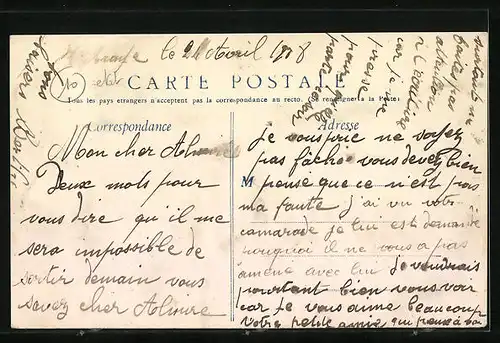 le 24 Avril 1908
CARTE POSTALE
Tous les pays étrangers n'acceptent pas la correspondance au recto. (Se renseigner à la Poste)
Correspondance
Adresse
Mon cher
Deux mots pour
vous dire qu'il me
sera impossible de
sortir demain vous
savez cher
je vous prie ne soyez
pas fâché vous devez bien
M pense que ce n'est pas
ma faute j'ai vu votre
camarade je lui est demandé
pourquoi il ne vous a pas
amené avec lui je voudrais
pourtant bien vous voir
car je vous aime beaucoup
votre petite amie qui pense à
surtout ne
faite pas
attention
car je me
presse
pour